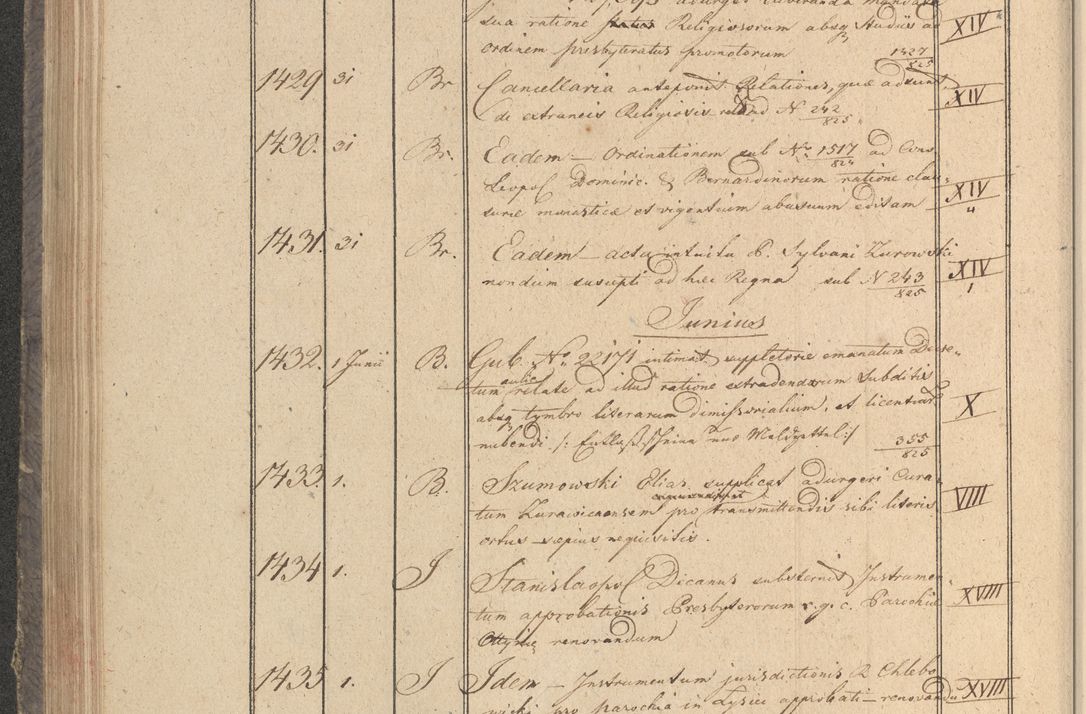 sua ratione status Religiosorum absq studiis ad XIV
ordinem presbyteratus promotorum 1327/825
1429 31 Br. Cancellaria anteponit Relationes, quae adsunt XIV
de extraneis Religiosis ad N 242/825
1430. 31 Br. Eadem — Ordinationem sub Nro 1517/824 ad Cons
Leopol Dominic. & Bernardinorum ratione clau- XIV/4
surae monasticae et vigentium abusuum editam
1431. 31 Br. Eadem — acta intuitu P. Sylvani Zurowski XIV/1
nondum suscepti ad haec Regna sub N 243/825
Junius
1432. 1 Junii B. Gub. No 22171 intimat suppletorie emanatum Decre-
tum aulic relate ad illud ratione extradendarum Subditis
absq tymbro literarum dimissorialium, et licentiar X
nubendi /: Entlaßscheine und Meldzettel :/ 355/825
1433. 1. B. Szumowski Elias supplicat adurgeri Cura-
tum Zurawicensem pro transmittendis sibi literis VIII
ortus saepius requisitis.
1434 1. J Stanislaopol Decanus substernit Instrumen-
tum approbationis Presbyterorum r. g. c. Parochiae XVIII
renovandum
1435 1. J Idem — Instrumentum jurisdictionis R Chlebo
wicki pro parochia in Lysiec approbati — renovandu XVIII